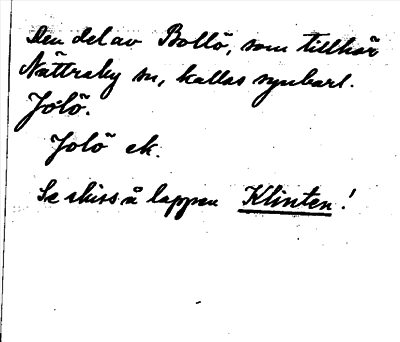 Den del av Bollö, som tillhör
Nättraby sn, kallas synbarl.
Jölö.
Jolö ek.
Se skiss å lappen Klinten!